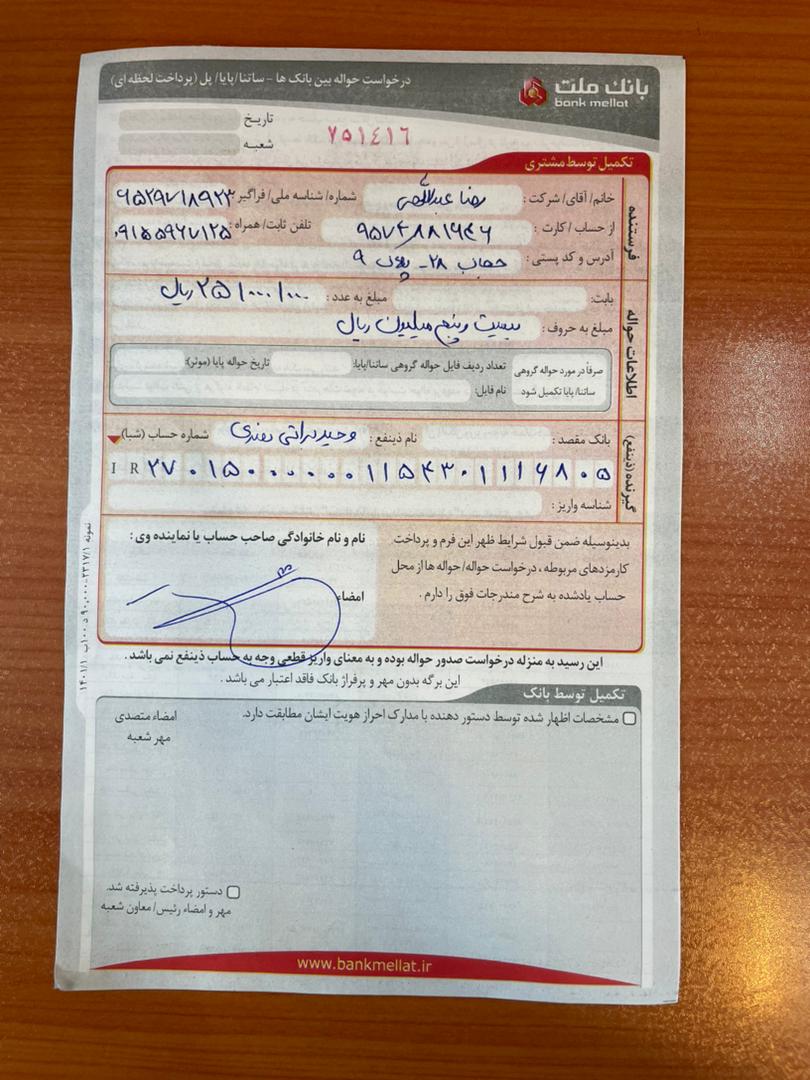 بانک ملت
bank mellat
درخواست حواله بین بانک ها - ساتنا/پایا/ پل (پرداخت لحظه ای)
تاریخ
شعبه
۷۵۱۴۱۶
تکمیل توسط مشتری
فرستنده
خانم/ آقای/ شرکت : رضا عبداللهی شماره/ شناسه ملی/ فراگیر: ۶۵۲۹۷۱۸۹۲۳
از حساب / کارت : تلفن ثابت/ همراه: ۰۹۱۵۵۹۶۷۱۲۵
آدرس و کد پستی : حجاب ۲۸ - پلاک ۹
اطلاعات حواله
بابت: مبلغ به عدد : ۲۵/۰۰۰/۰۰۰ ریال
مبلغ به حروف : بیست و پنج میلیون ریال
صرفاً در مورد حواله گروهی ساتنا/ پایا تکمیل شود
تعداد ردیف فایل حواله گروهی ساتنا/پایا: تاریخ حواله پایا (موثر):
نام فایل:
گیرنده (ذینفع)
بانک مقصد : نام ذینفع : وحید براتی شماره حساب (شبا)
IR ۲۷۰۱۵۰۰۰۰۰۰۱۱۵۴۳۰۱۱۱۶۸۰۵
شناسه واریز :
بدینوسیله ضمن قبول شرایط ظهر این فرم و پرداخت
کارمزدهای مربوطه ، درخواست حواله/ حواله ها از محل
حساب یادشده به شرح مندرجات فوق را دارم .
نام و نام خانوادگی صاحب حساب یا نماینده وی :
امضاء
این رسید به منزله درخواست صدور حواله بوده و به معنای واریز قطعی وجه به حساب ذینفع نمی باشد .
این برگه بدون مهر و پرفراژ بانک فاقد اعتبار می باشد .
تکمیل توسط بانک
مشخصات اظهار شده توسط دستور دهنده با مدارک احراز هویت ایشان مطابقت دارد.
امضاء متصدی
مهر شعبه
دستور پرداخت پذیرفته شد.
مهر و امضاء رئیس/ معاون شعبه
www.bankmellat.ir